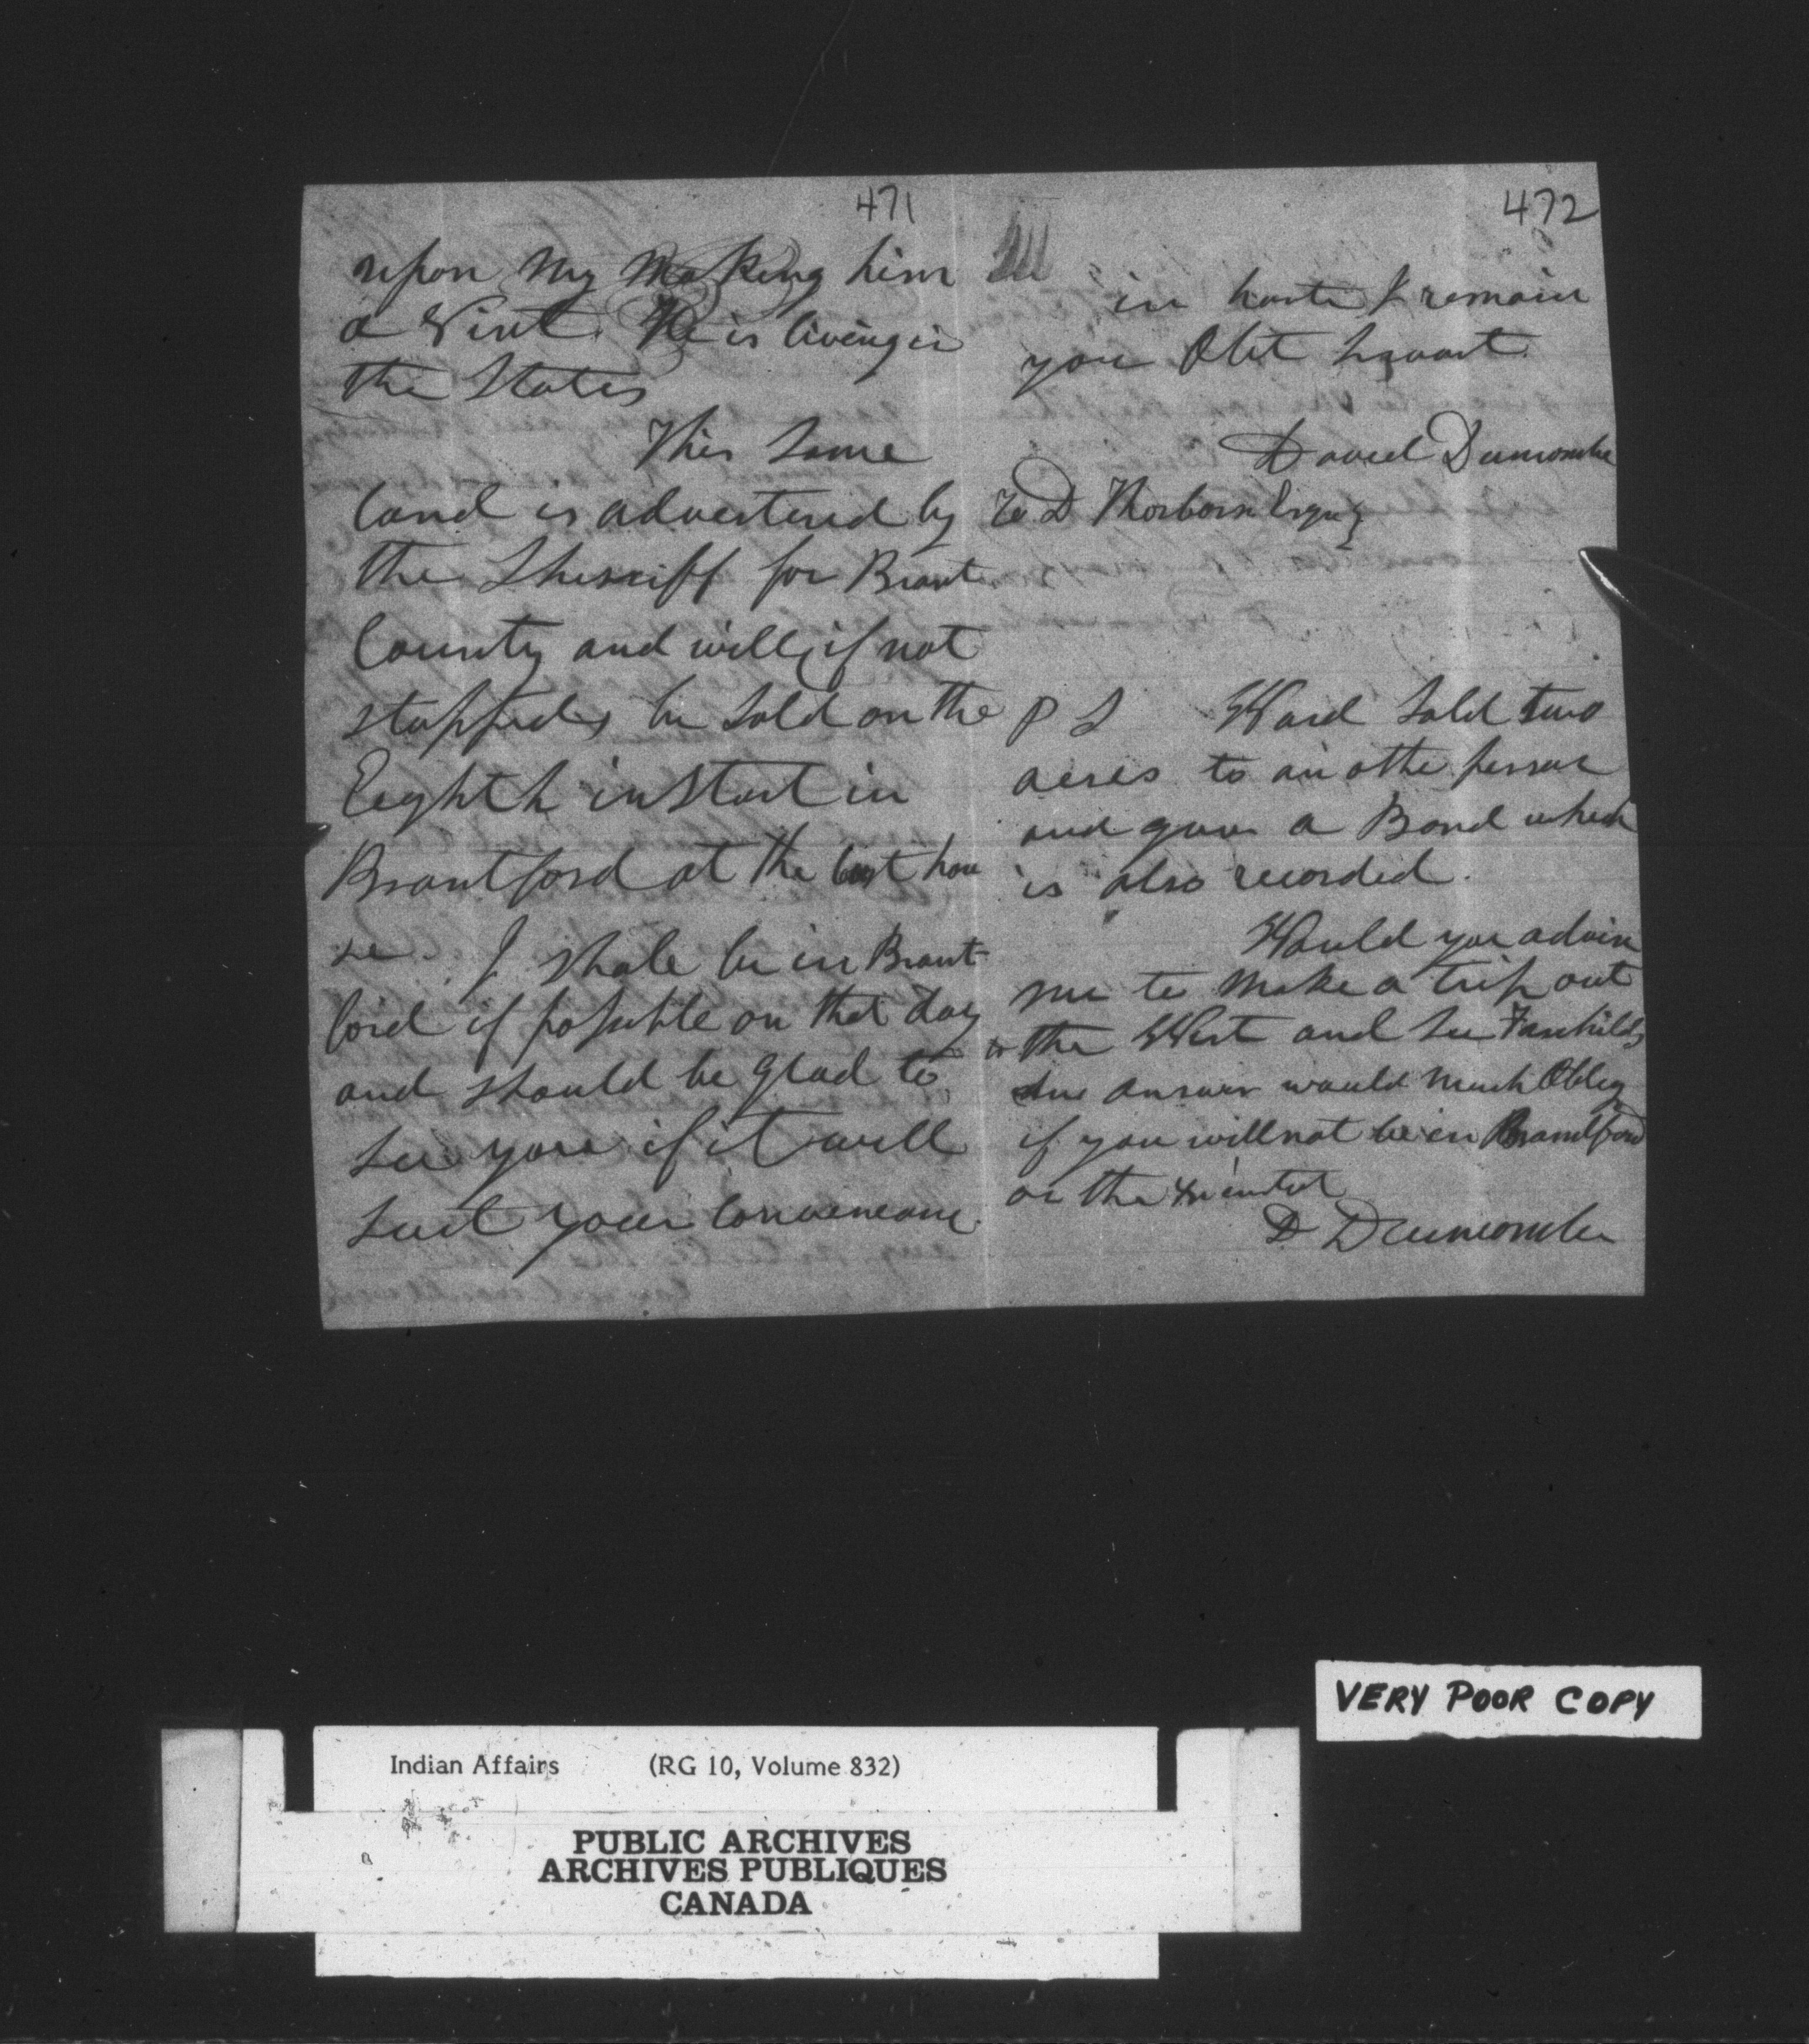 471
upon my making him
a Visit. He is living in
the States
This Same
land is advertised by
the Sherriff for Brant
County and will, if not
stopped, be Sold on the
Eighth instant in
Brantford at the Court hou
se. I shale be in Brant
ford if possible on that day
and should be glad to
See you if it will
Suit your Convenience.
472
in haste I remain
your Obt Servant.
David Duncombe
To D Thorborn Esqr
P S Ward Sold two
acres to an othe person
and gave a Bond which
is also recorded.
Would you advise
me to make a trip out
to the West and See Fairchilds
answer would much Oblig
if you will not be in Brantford
on the
D Duncombe
VERY POOR COPY
Indian Affairs (RG 10, Volume 832)
PUBLIC ARCHIVES
ARCHIVES PUBLIQUES
CANADA